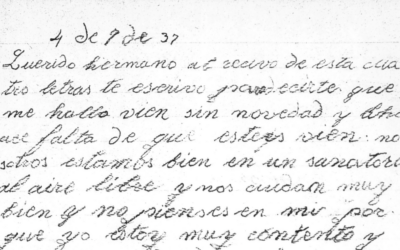 4 de 9 de 37
Querido hermano al recivo de esta cua
tro letras te escrivo paradecirte que
me hallo vien sin novedad y
ace falta de que estes vien no
sotros estamos bien en un sanatori
al aire libre y nos cuidan muy
bien y no pienses en mi por
que yo estoy muy contento y